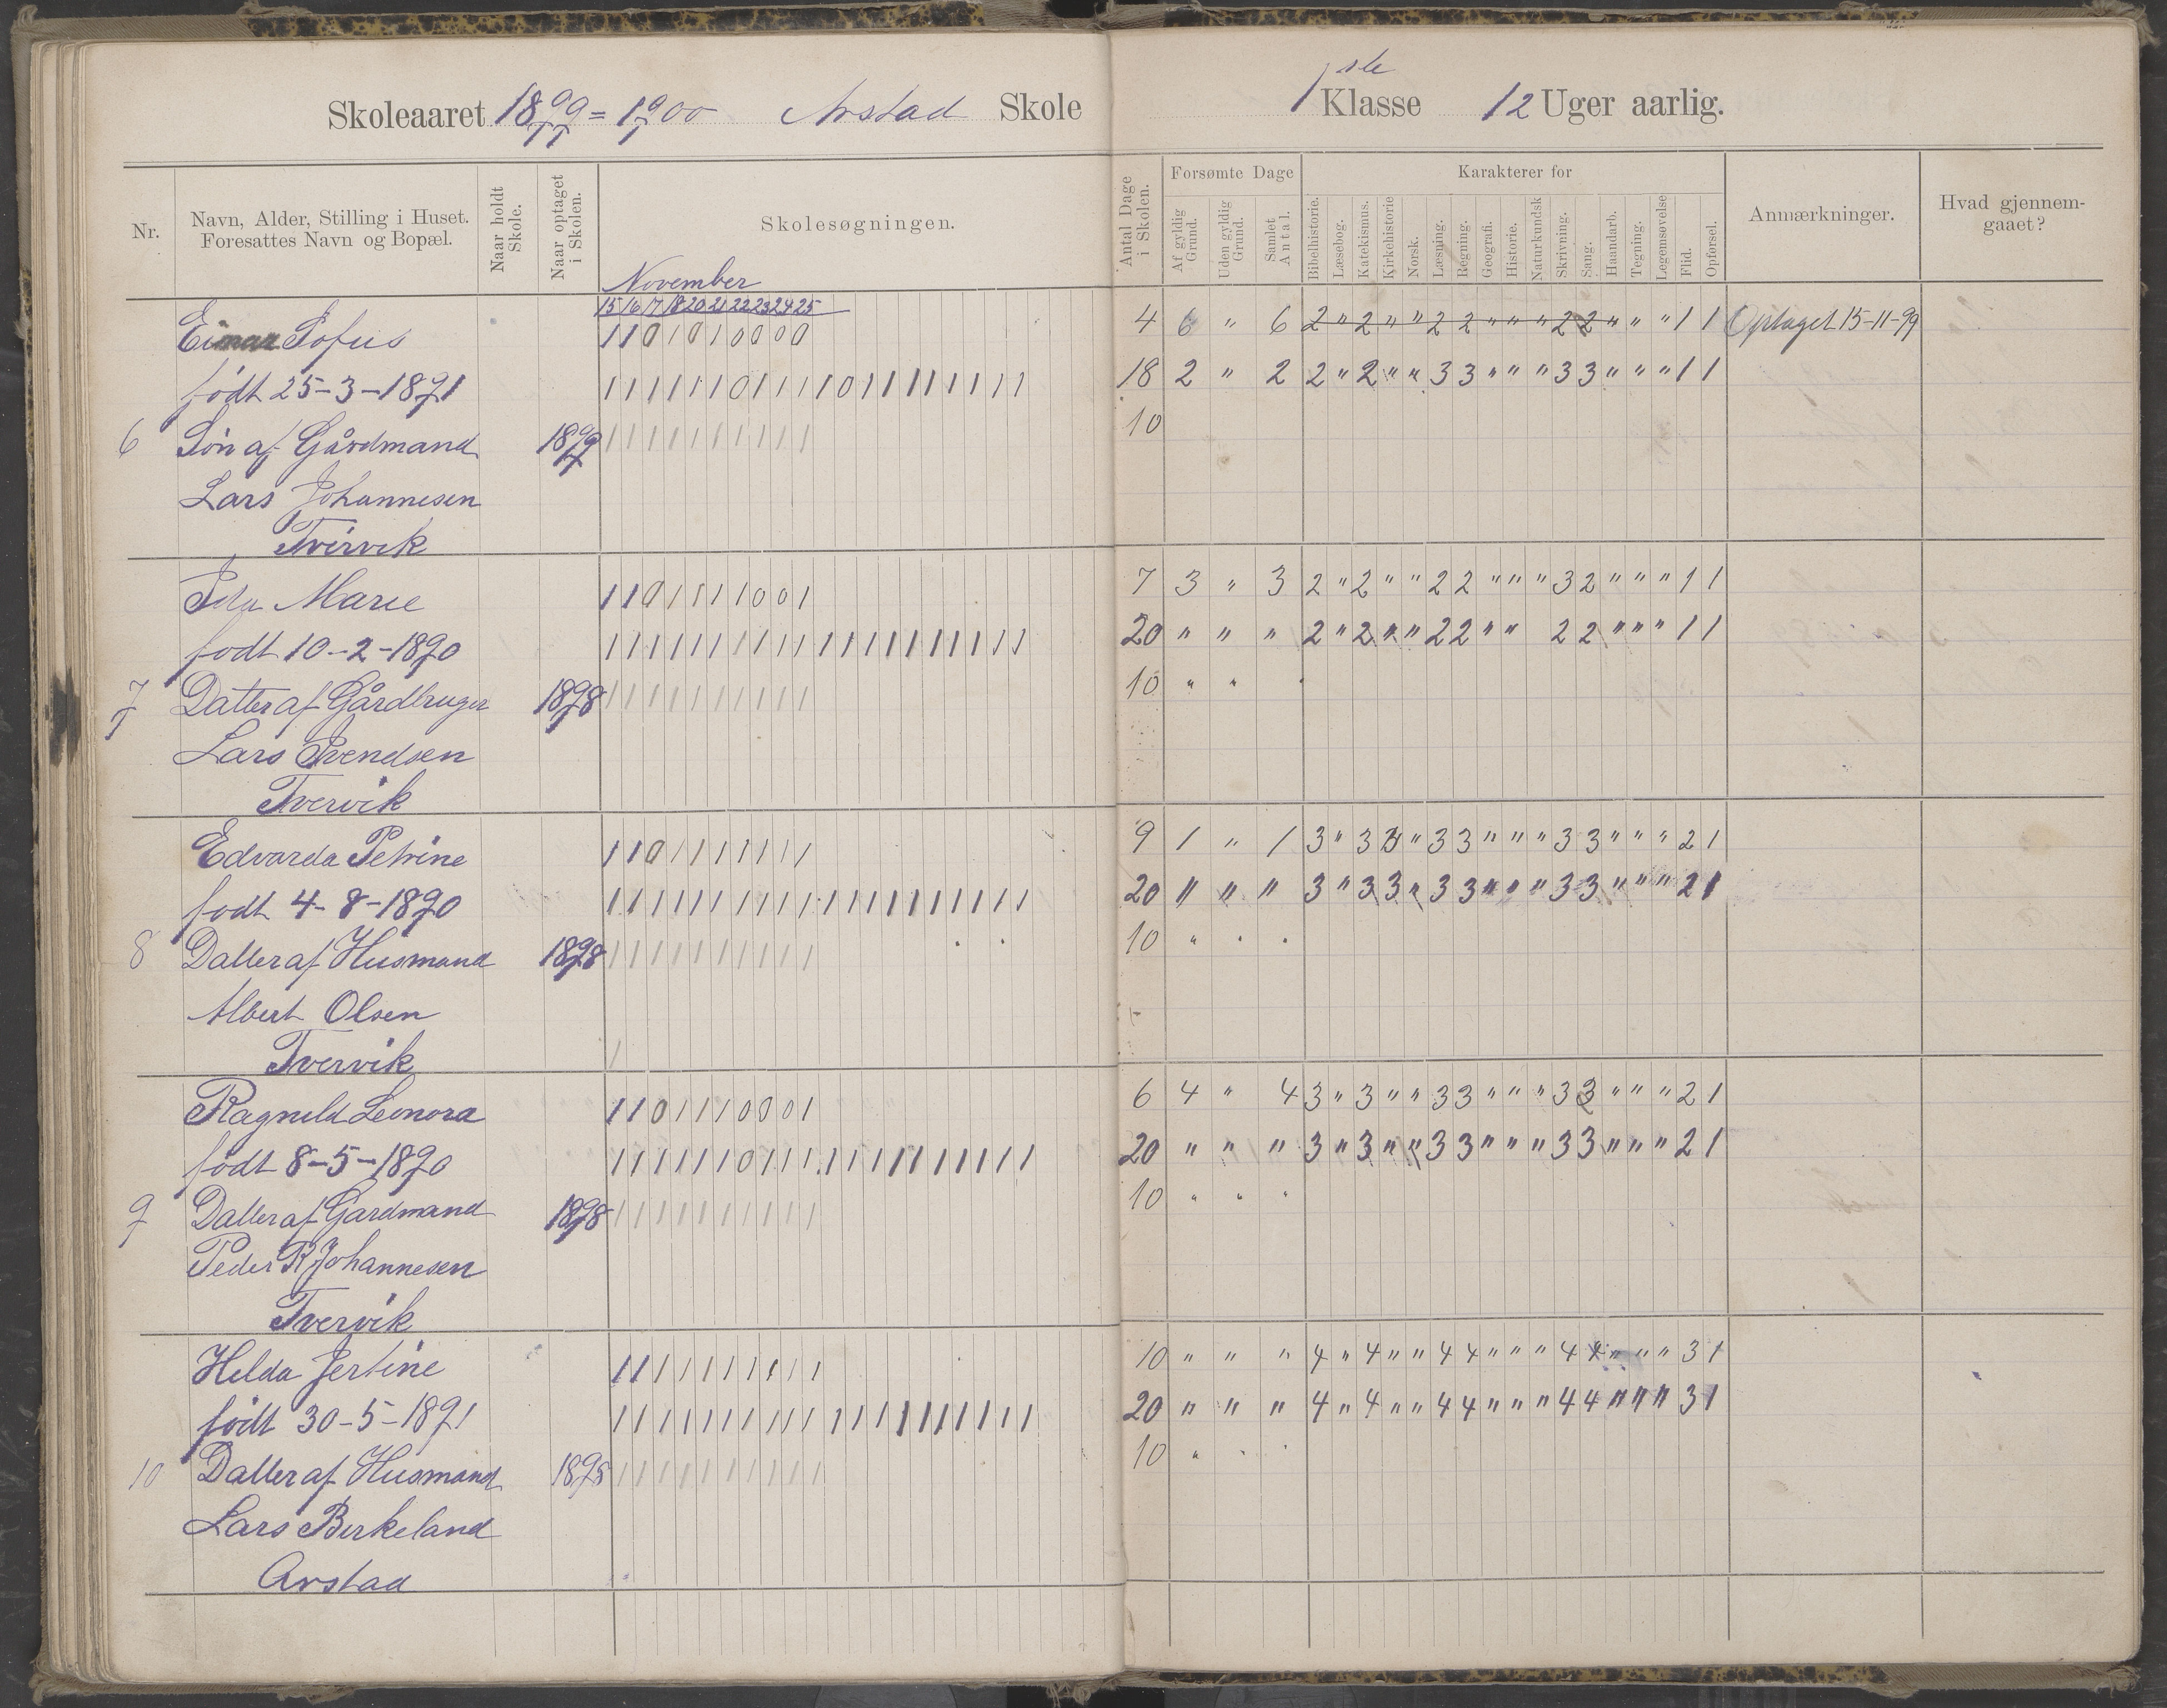 Skoleaaret 1899=1900 Arstad Skole
1ste Klasse 12 Uger aarlig.
Nr.
Navn, Alder, Stilling i Huset.
Foresattes Navn og Bopæl.
Naar holdt
Skole.
Naar optaget
i Skolen.
Skolesøgningen.
Antal Dage
i Skolen.
Forsømte Dage
Af gyldig
Grund.
Uden gyldig
Grund.
Samlet
Antal.
Karakterer for
Bibelhistorie.
Læsebog.
Katekismus.
Kirkehistorie
Norsk.
Læsning.
Regning.
Geografi.
Historie.
Naturkundsk
Skrivning.
Sang.
Haandarb.
Tegning.
Legemsøvelse
Flid.
Opførsel.
Anmærkninger.
Hvad gjennem-
gaaet?
November
15 16 17 18 20 21 22 23 24 25
Einar Sofus 1 1 0 1 0 1 0 0 0 0 4 6 " 6 2 " 2 " " 2 2 " " " 2 2 " " " 1 1 Optaget 15-11-99
født 25-3-1891 1 1 1 1 1 1 0 1 1 1 1 0 1 1 1 1 1 1 1 1 18 2 " 2 2 " 2 " " 3 3 " " " 3 3 " " " 1 1
6 Søn af Gårdmand 1899 1 1 1 1 1 1 1 1 1 1 10
Lars Johannesen
Tvervik
Ida Marie 1 1 0 1 1 1 1 0 0 1 7 3 " 3 2 " 2 " " 2 2 " " " 3 2 " " " 1 1
født 10-2-1890 1 1 1 1 1 1 1 1 1 1 1 1 1 1 1 1 1 1 1 1 20 " " " 2 " 2 " " 2 2 " " 2 2 " " " 1 1
7 Datter af Gårdbruger 1898 1 1 1 1 1 1 1 1 1 1 10 " "
Lars Svendsen
Tvervik
Edvarda Petrine 1 1 0 1 1 1 1 1 1 1 9 1 " 1 3 " 3 3 " 3 3 " " " 3 3 " " " 2 1
født 4-8-1890 1 1 1 1 1 1 1 1 1 1 1 1 1 1 1 1 1 1 1 1 20 " " " 3 " 3 3 " 3 3 " " " 3 3 " " " 2 1
8 Datter af Husmand 1898 1 1 1 1 1 1 1 1 1 1 10 " " "
Albert Olsen
Tvervik
Ragnild Leonora 1 1 0 1 1 1 0 0 0 1 6 4 " 4 3 " 3 " " 3 3 " " " 3 3 " " " 2 1
født 8-5-1890 1 1 1 1 1 1 0 1 1 1 1 1 1 1 1 1 1 1 1 1 20 " " " 3 " 3 " " 3 3 " " " 3 3 " " " 2 1
9 Datter af Gardmand 1898 1 1 1 1 1 1 1 1 1 1 10 " " "
Peder R Johannesen
Tvervik
Helda Jertine 1 1 1 1 1 1 1 1 1 1 10 " " " 4 " 4 " " 4 4 " " " 4 4 " " " 3 1
født 30-5-1891 1 1 1 1 1 1 1 1 1 1 1 1 1 1 1 1 1 1 1 1 20 " " " 4 " 4 " " 4 4 " " " 4 4 " " " 3 1
10 Datter af Husmand 1898 1 1 1 1 1 1 1 1 1 1 10 " " "
Lars Birkeland
Arstad